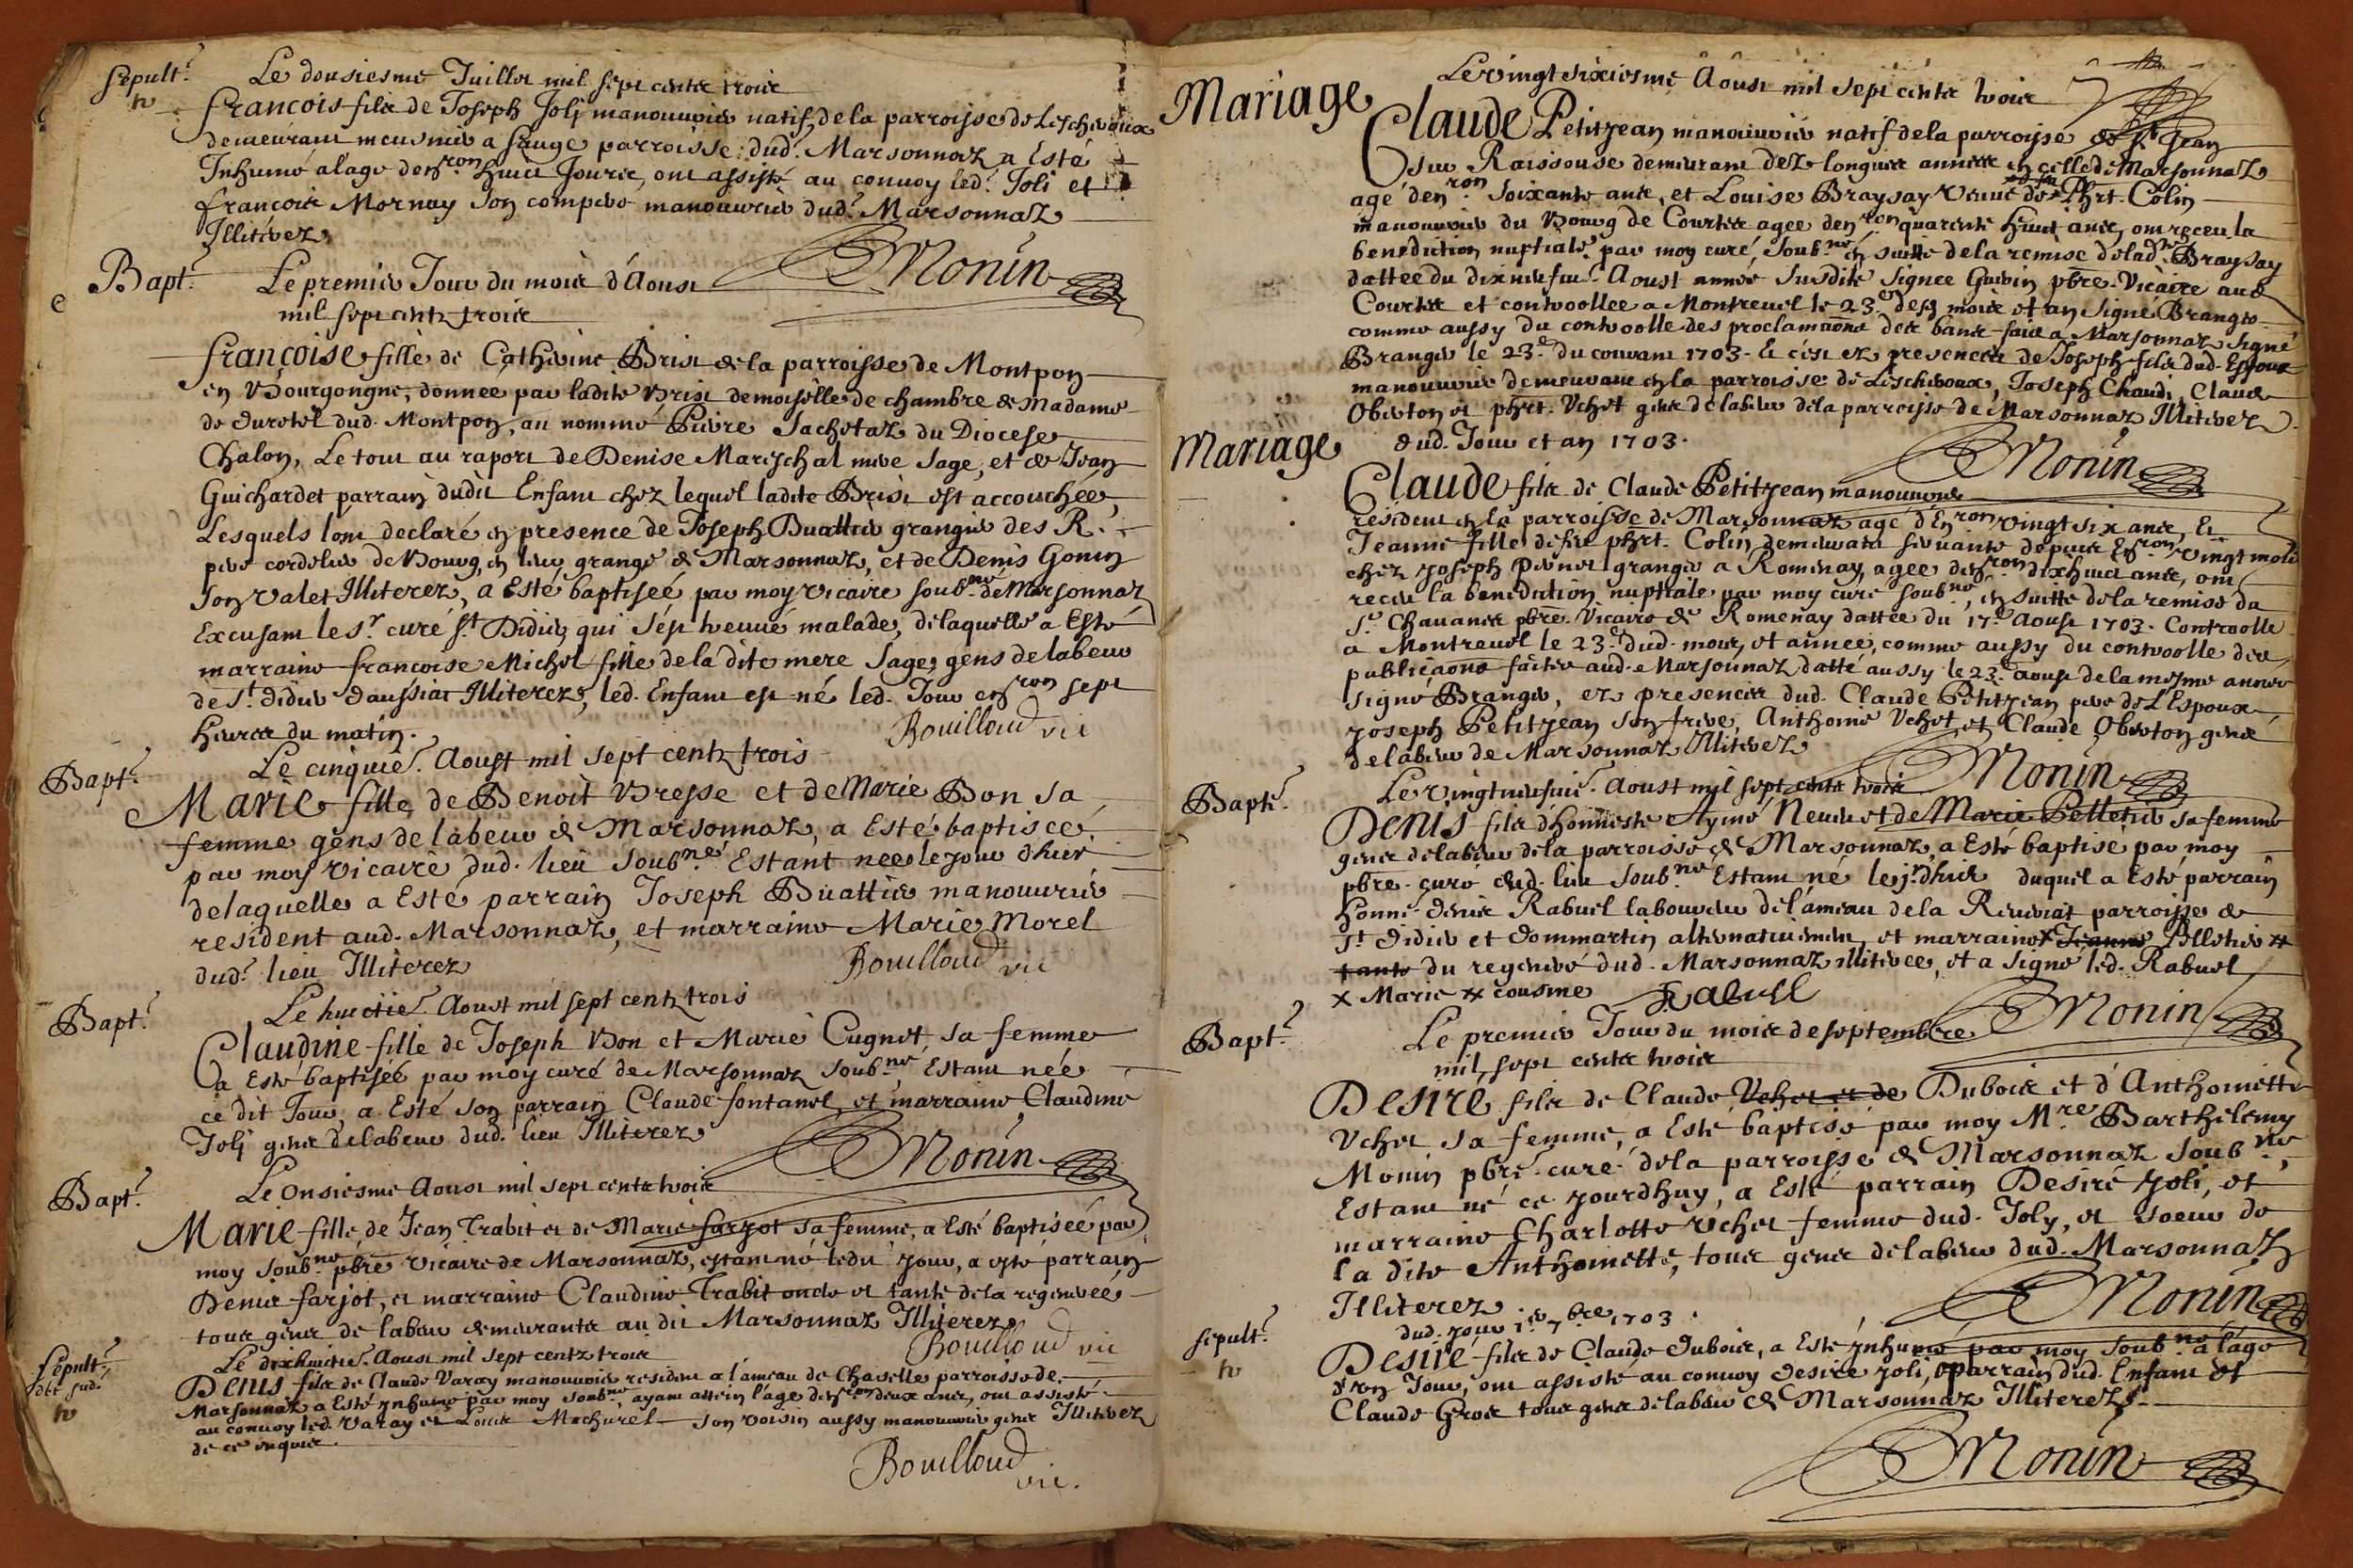 Sepult.
Le dousiesme Juillet mil sept cents trois
francois fils de Joseph Joly manouvrier natif de la parroisse de Lescheroux
demeurant meusnier a fauge parroisse dud. Marsonnaz a Esté
Inhumé a l'age d'en.ron huict Jours, ont assisté au convoy led. Joli et
francois Mornay son compere manouvrier dud. Marsonnaz
Illiterez
Monin
Bapt.
Le premier Jour du mois d'Aoust
mil sept cents trois
françoise fille de Catherine Brist de la parroisse de Montpon
en Bourgongne, donnee par ladite Brist demoiselle de chambre de Madame
de Duretel dud. Montpon, au nommé Pierre Sachetaz du Diocese
Chalon, Le tout au raport de Denise Mareschal mere sage, et de Jean
Guichardet parrain dudit Enfant chez lequel ladite Brist est accouchée,
Lesquels l'ont declaré en presence de Joseph Buattier granger des R.
pere cordelier de Bourg, en leur grange de Marsonnaz, et de Denis Gonin
son valet Illiterez, a Esté baptiseé par moy vicaire soub.né de Marsonnaz
Excusant le s.r curé s.t Didier qui s'est treuvé malade, de laquelle a Esté
marraine francoise Michel fille de la dite mere sage, gens de labeur
de s.t didier daussiat Illiterez, led. Enfant est né led. Jour en.ron sept
heures du matin.
Bouilloud vic
Bapt.
Le cinquie. Aoust mil sept centz trois
Marie fille de Benoit Bresse et de Marie Bon sa
femme gens de labeur de Marsonnaz, a Esté baptisee
par moy vicaire dud. lieu soub.né Estant nee le jour d'hier
delaquelle a Esté parrain Joseph Buattier manouvrier
resident aud. Marsonnaz, et marraine Marie Morel
dud. lieu Illiterez
Bouilloud vic
Bapt.
Le huictie. Aoust mil sept centz trois
Claudine fille de Joseph Bon et Marie Cugnet sa femme
a Esté baptiseé par moy curé de Marsonnaz soub.né, Estant née
ce dit Jour, a Esté son parrain Claude fontanel, et marraine Claudine
Joly gens de labeur dud. lieu Illiterez
Monin
Bapt.
Le Onsiesme Aoust mil sept cents trois
Marie fille de Jean Trabit et de Marie farjot sa femme, a Esté baptiseé par
moy soub.né pbre vicaire de Marsonnaz, estant né ledit jour, a esté parrain
Denis farjot, et marraine Claudine Trabit oncle et tante de la regenereé
tous gens de labeur demeurants au dit Marsonnaz Illiterez
Bouilloud vic
Sepult.
Le dixhuictie. Aoust mil sept centz trois
Denis fils de Claude Varay manouvrier resident a l'ameau de Chaselle parroisse de
Marsonnaz a Esté ynhumé par moy soub.né, ayant attein l'age d'en.ron deux ans, ont assisté
au convoy led. Varay et Louis Machurel son voisin aussy manouvrier gens Illiterez
de ce enquis
Bouilloud
vic.
Le vingt sixiesme Aoust mil sept cents trois
Mariage
Claude Petitjean manouvrier natif de la parroisse de S.t Jean
sur Raissouse demeurant dez longues annees en celle de Marsonnaz
agé d'en.ron soixante ans, et Louise Braysay veuve de Phrt. Colin
manouvrier du Bourg de Courtes agee d'en.ron quarente huict ans, ont receu la
benediction nuptiale par moy curé, soub.né en suitte de la remise de lad. Braysay
dattee du dixneufvie. Aoust annee susdite signee Guerin pbre. Vicaire aud.
Courtes et controollee a Montrevel le 23.e desd. mois et an signé Brangier
comme aussy du controolle des proclamaons des bans faits a Marsonnaz signé
Brangier le 23.e du courant 1703. Et c'est ez presences de Joseph fils dud. Espoux
manouvrier demeurant en la parroisse de Lescheroux, Joseph Chandi, Claude
Oberton et phrt. Vchet gens de labeur de la parroisse de Marsonnaz Illiterez
Mariage
dud. Jour et an 1703.
Monin
Claude fils de Claude Petitjean manouvrier
resident en la parroisse de Marsonnaz agé d'En.ron vingt six ans, Et
Jeanne fille de feu phrt. Colin demeurant servante depuis En.ron vingt mois
chez Joseph Perret granger a Romenay, agee d'en.ron dixhuict ans, ont
receu la benediction nuptiale par moy curé soub.né, en suitte de la remise du
s.r Chavanes pbre. Vicaire de Romenay dattee du 17.e Aoust 1703. Controolle
a Montrevel le 23.e dud. mois, et annee, comme aussy du controolle des
publicaons faites aud. Marsonnaz datté aussy le 23.e aoust de la mesme annee
signé Brangier, ez presences dud. Claude Petitjean pere de L'Espoux
Joseph Petitjean son frere, Anthoine Vchet, et Claude Oberton gens
de labeur de Marsonnaz Illiterez
Monin
Bapt.
Le vingtneufvie. Aoust mil sept cents trois
Denis fils d'honneste Aymé Neveu et de Marie Pelletier sa femme
gens de labeur de la parroisse de Marsonnaz, a Esté baptisé par moy
pbre. curé dud. lieu soub.né Estant né le j.r d'hier duquel a Esté parrain
honne. Denis Rabuel laboureur de l'ameau de la Reveriat parroisse de
S.t Didier et Dommartin alternativement, et marraine x Jeanne Pelletier xx
tante du regeneré dud. Marsonnaz illiteree, et a signé led. Rabuel
x Marie xx cousine
Rabuel
Monin
Bapt.
Le premier Jour du mois de septembre
mil sept cents trois
Desiré fils de Claude Vchet et de Dubois et d'Anthoinette
Vchet sa femme, a Esté baptisé par moy M.re Barthelemy
Monin pbre. curé de la parroisse de Marsonnaz soub.né,
Estant né ce jourdhuy, a Esté parrain Desiré Joli, et
marraine Charlotte Vchet femme dud. Joly, et soeur de
la dite Anthoinette, tous gens de labeur dud. Marsonnaz
Illiterez
Monin
Sepult.
dud. jour 1.er 7.bre 1703.
Desiré fils de Claude Dubois, a Esté ynhumé par moy soub.né a l'age
d'un Jour, ont assisté au convoy Desiré Joli, parrain dud. Enfant et
Claude Gros tous gens de labeur de Marsonnaz Illiterez.
Monin